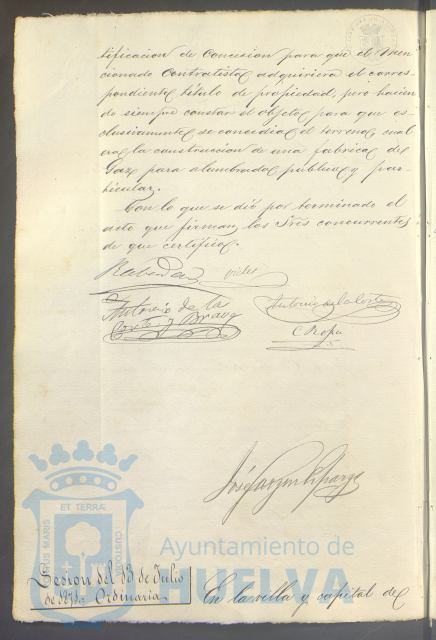 tificacion de Concesion para que el Men
cionado Contratista adquiriera el corres
pondiente titulo de propiedad, pero hacien
do siempre constar el objeto para que es
clusivamente se concedia el terreno cual
era la construccion de una fabrica de
Gaz para alumbrado publico y par
ticular.
Con lo que se dió por terminado el
acto que firman los Sres concurrentes
de que certifico.
Antonio de la
Corte y Bravo
Antonio de la Corte
José
ET TERRÆ
PUS MARIS
CUSTODI
Ayuntamiento de
HUELVA
Sesion del 13 de Julio
de Ordinaria.
En la villa y capital de